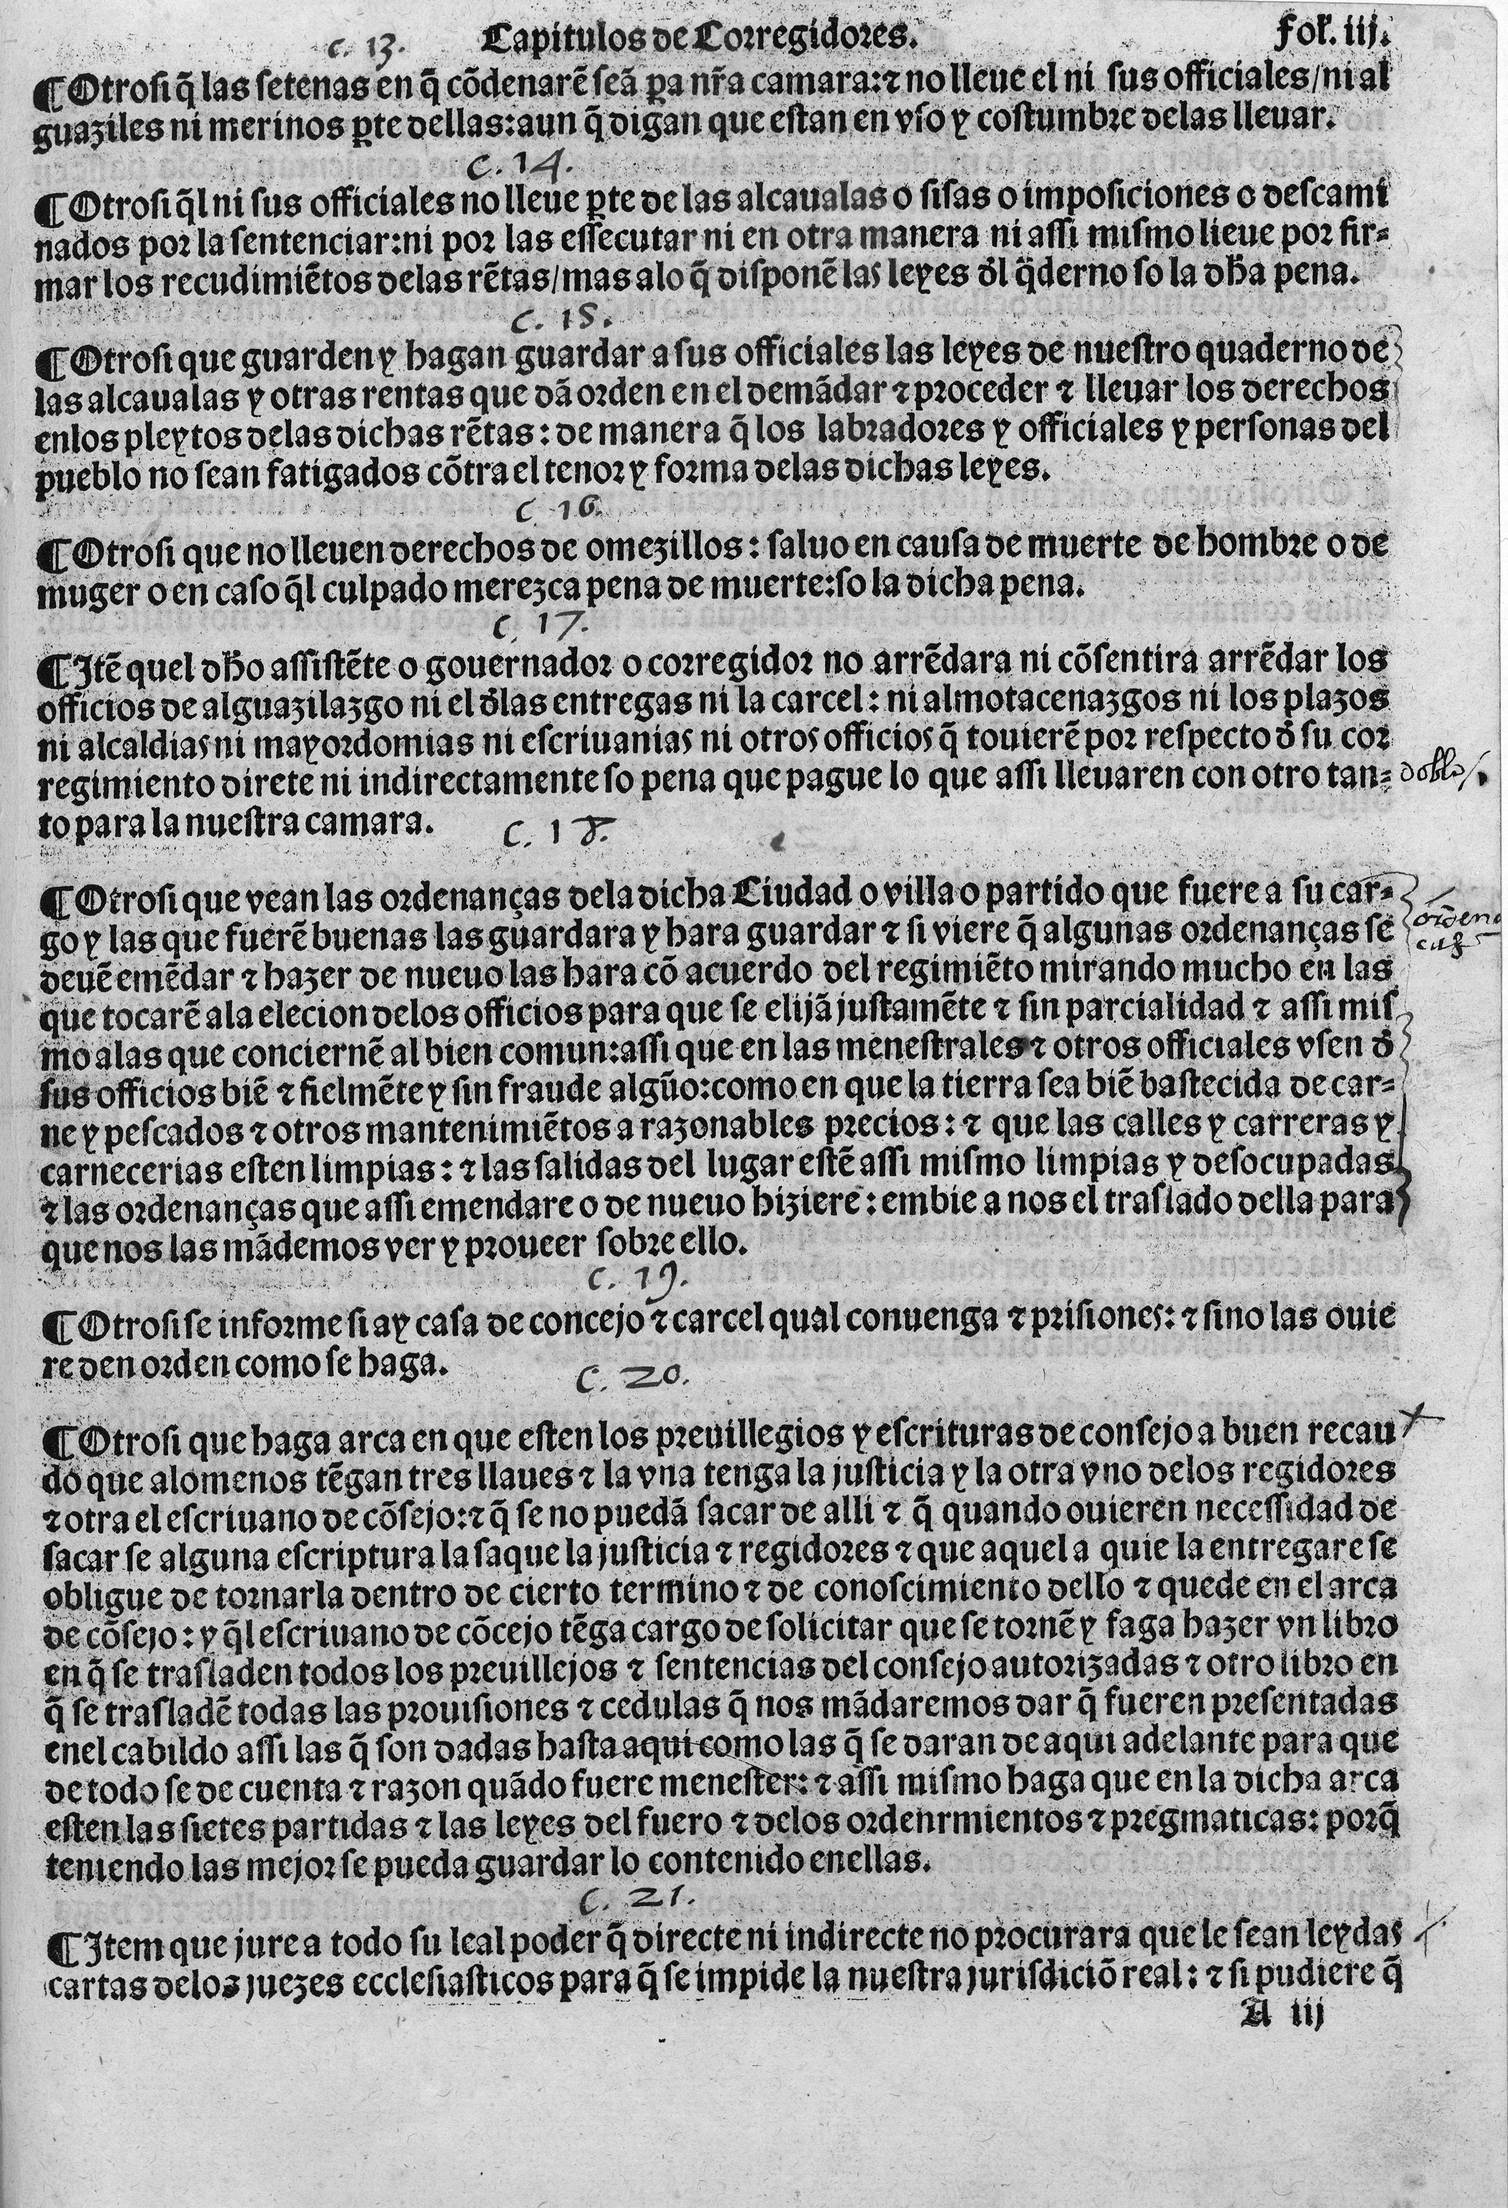 c. 13. Capitulos de Corregidores. Fol. iij.
¶ Otrosi q̃ las setenas en q̃ cõdenarẽ seã ꝑa nr̃a camara: ⁊ no lleue el ni sus officiales/ni al
guaziles ni merinos ꝑte dellas: aun q̃ digan que estan en vso y costumbre delas lleuar.
c. 14.
¶ Otrosi q̃l ni sus officiales no lleue ꝑte de las alcaualas o sisas o imposiciones o descami
nados por la sentenciar: ni por las essecutar ni en otra manera ni assi mismo lieue por fir-
mar los recudimiẽtos delas rẽtas/mas alo q̃ disponẽ las leyes d̃l q̃derno so la dh̃a pena.
c. 15.
¶ Otrosi que guarden y hagan guardar a sus officiales las leyes de nuestro quaderno de
las alcaualas y otras rentas que dã orden en el demãdar ⁊ proceder ⁊ lleuar los derechos
enlos pleytos delas dichas rẽtas: de manera q̃ los labradores y officiales y personas del
pueblo no sean fatigados cõtra el tenor y forma delas dichas leyes.
c. 16.
¶ Otrosi que no lleuen derechos de omezillos: saluo en causa de muerte de hombre o de
muger o en caso q̃l culpado merezca pena de muerte: so la dicha pena.
c. 17.
¶ Itẽ quel dh̃o assistẽte o gouernador o corregidor no arrẽdara ni cõsentira arrẽdar los
officios de alguazilazgo ni el d̃las entregas ni la carcel: ni almotacenazgos ni los plazos
ni alcaldias ni mayordomias ni escriuanias ni otros officios q̃ touierẽ por respecto d̃ su cor
regimiento direte ni indirectamente so pena que pague lo que assi lleuaren con otro tan- doblo
to para la nuestra camara.
c. 18.
¶ Otrosi que vean las ordenanças dela dicha Ciudad o villa o partido que fuere a su car-
go y las que fuerẽ buenas las guardara y hara guardar ⁊ si viere q̃ algunas ordenanças se
deuẽ emẽdar ⁊ hazer de nueuo las hara cõ acuerdo del regimiẽto mirando mucho en las
que tocarẽ ala elecion delos officios para que se elijã justamẽte ⁊ sin parcialidad ⁊ assi mis
mo alas que conciernẽ al bien comun: assi que en las menestrales ⁊ otros officiales vsen d̃
sus officios biẽ ⁊ fielmẽte y sin fraude algũo: como en que la tierra sea biẽ bastecida de car-
ne y pescados ⁊ otros mantenimiẽtos a razonables precios: ⁊ que las calles y carreras y
carnecerias esten limpias: ⁊ las salidas del lugar estẽ assi mismo limpias y desocupadas
⁊ las ordenanças que assi emendare o de nueuo hiziere: embie a nos el traslado della para
que nos las mãdemos ver y proueer sobre ello.
c. 19.
¶ Otrosi se informe si ay casa de concejo ⁊ carcel qual conuenga ⁊ prisiones: ⁊ sino las ouie
re den orden como se haga.
c. 20.
¶ Otrosi que haga arca en que esten los preuillegios y escrituras de consejo a buen recau
do que alomenos tẽgan tres llaues ⁊ la vna tenga la justicia y la otra vno delos regidores
⁊ otra el escriuano de cõsejo: ⁊ q̃ se no puedã sacar de alli ⁊ q̃ quando ouieren necessidad de
sacar se alguna escriptura la saque la justicia ⁊ regidores ⁊ que aquel a quie la entregare se
obligue de tornarla dentro de cierto termino ⁊ de conoscimiento dello ⁊ quede en el arca
de cõsejo: y q̃l escriuano de cõcejo tẽga cargo de solicitar que se tornẽ y faga hazer vn libro
en q̃ se trasladen todos los preuillejos ⁊ sentencias del consejo autorizadas ⁊ otro libro en
q̃ se trasladẽ todas las prouisiones ⁊ cedulas q̃ nos mãdaremos dar q̃ fueren presentadas
enel cabildo assi las q̃ son dadas hasta aqui como las q̃ se daran de aqui adelante para que
de todo se de cuenta ⁊ razon quãdo fuere menester: ⁊ assi mismo haga que en la dicha arca
esten las sietes partidas ⁊ las leyes del fuero ⁊ delos ordenrmientos ⁊ pregmaticas: porq̃
teniendo las mejor se pueda guardar lo contenido enellas.
c. 21.
¶ Item que jure a todo su leal poder q̃ directe ni indirecte no procurara que le sean leydas
cartas delos juezes ecclesiasticos para q̃ se impide la nuestra jurisdiciõ real: ⁊ si pudiere q̃
A iij